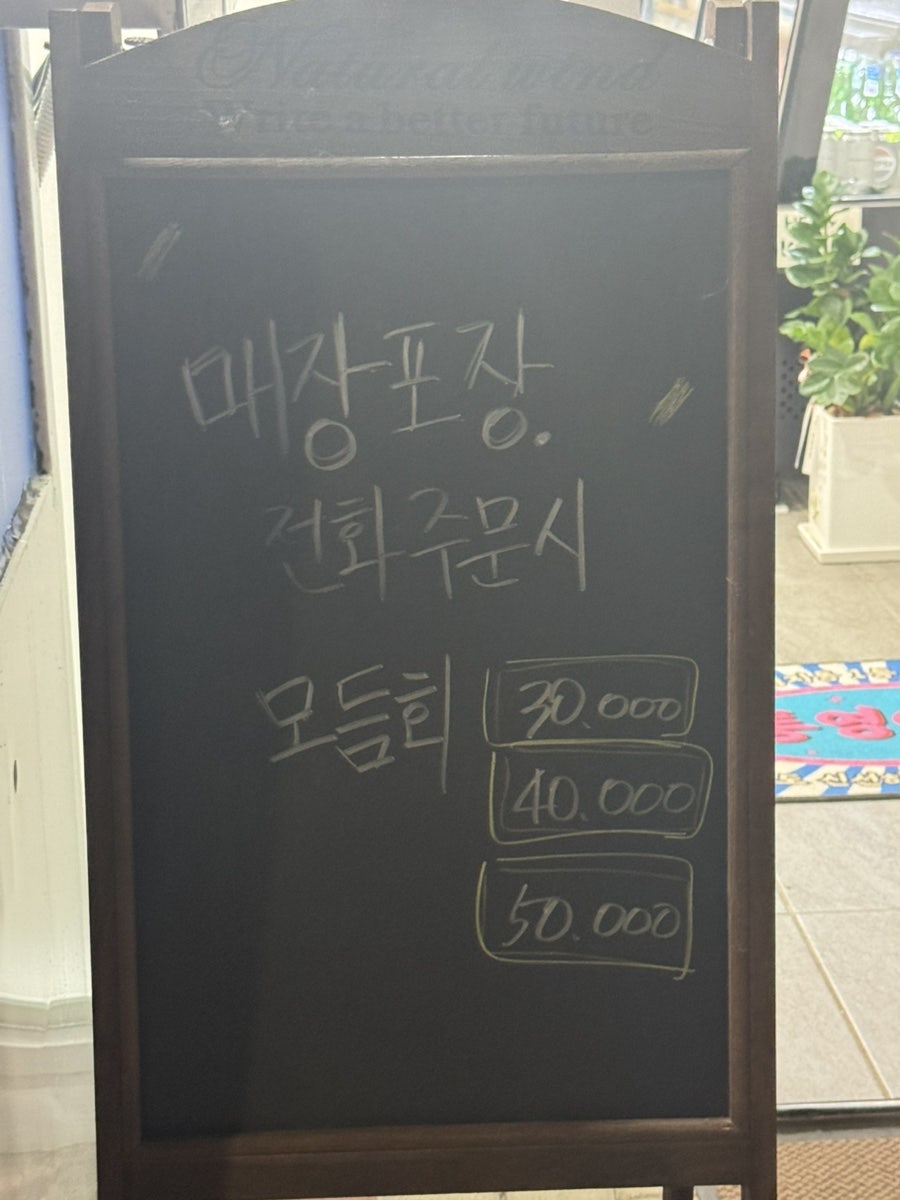 Natural wind
Write a better future
매장포장.
전화주문시
모듬회 30.000
40.000
50.000